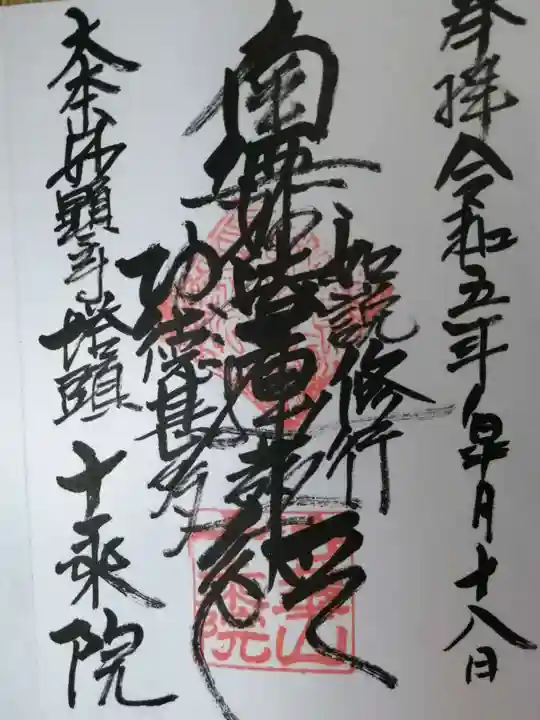 奉拝 令和五年 皐月十八日
如説修行
南無妙法蓮華経
功徳甚多
大本山妙顕寺塔頭 十乗院